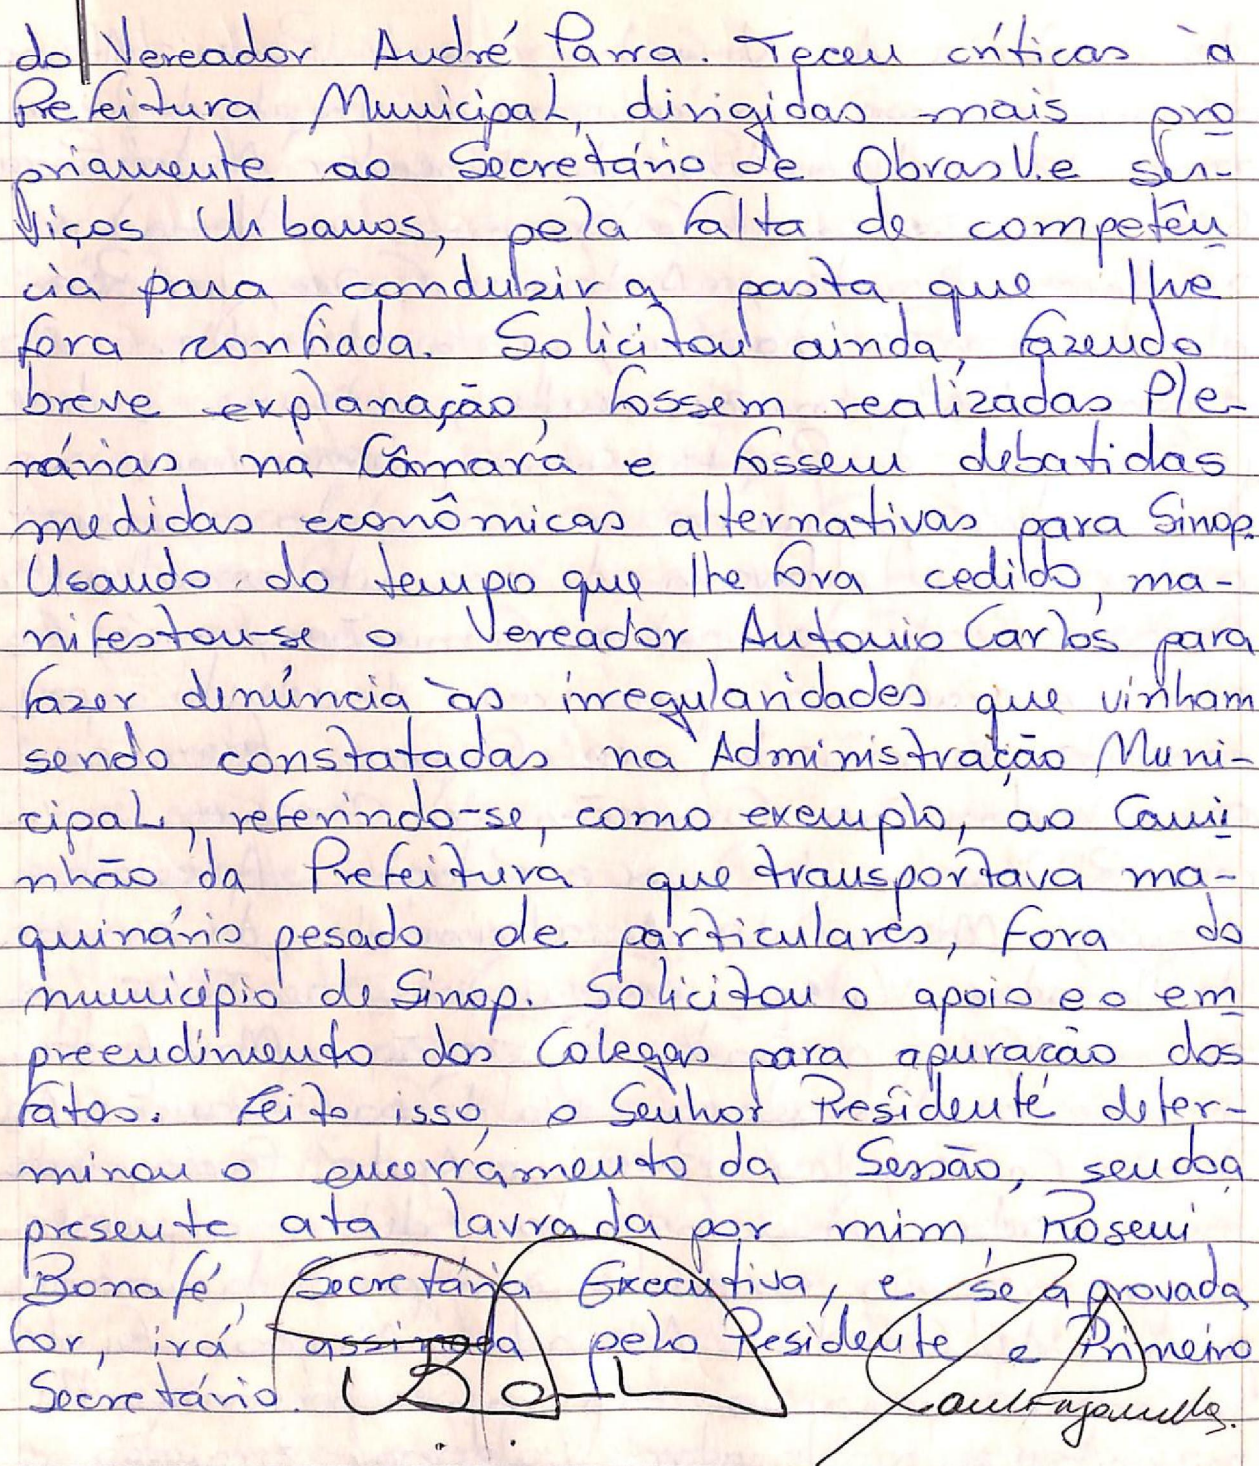 do Vereador André Parra. Teceu críticas à
Prefeitura Municipal, dirigidas mais pro
priamente ao Secretário de Obras V.e ser-
viços Urbanos, pela falta de competên
cia para conduzir a pasta que lhe
fora confiada. Solicitou ainda, fazendo
breve explanação, fossem realizadas Ple-
nárias na Câmara e fossem debatidas
medidas econômicas alternativas para Sinop.
Usando do tempo que lhe fora cedildo, ma-
nifestou-se o Vereador Antonio Carlos para
fazer denúncia às irregularidades que vinham
sendo constatadas na Administração Muni-
cipal, referindo-se, como exemplo, ao Cami
nhão da Prefeitura que transportava ma-
quinário pesado de particulares, fora do
município de Sinop. Solicitou o apoio e o em
preendimento dos Colegas para apuração dos
fatos. Feito isso, o Senhor Presidente deter-
minou o encerramento da Sessão, sendo a
presente ata lavrada por mim, Roseni
Bonafé, Secretária Executiva, e se aprovada
for, irá assinada pelo Presidente e Primeiro
Secretário.